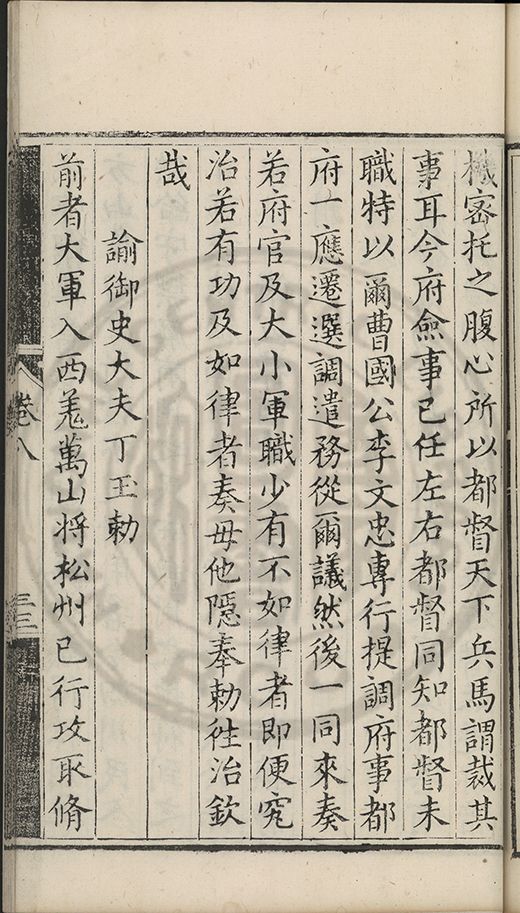 機密托之腹心所以都督天下兵馬謂裁其
事耳今府僉事已任左右都督同知都督未
職特以爾曹國公李文忠專行提調府事都
府一應遷選調遣務從爾議然後一同來奏
若府官及大小軍職少有不如律者即便究
治若有功及如律者奏毋他隱奉勅徃治欽
哉
諭御史大夫丁玉勅
前者大軍入西羗萬山将松州已行攻取脩
卷八
三三